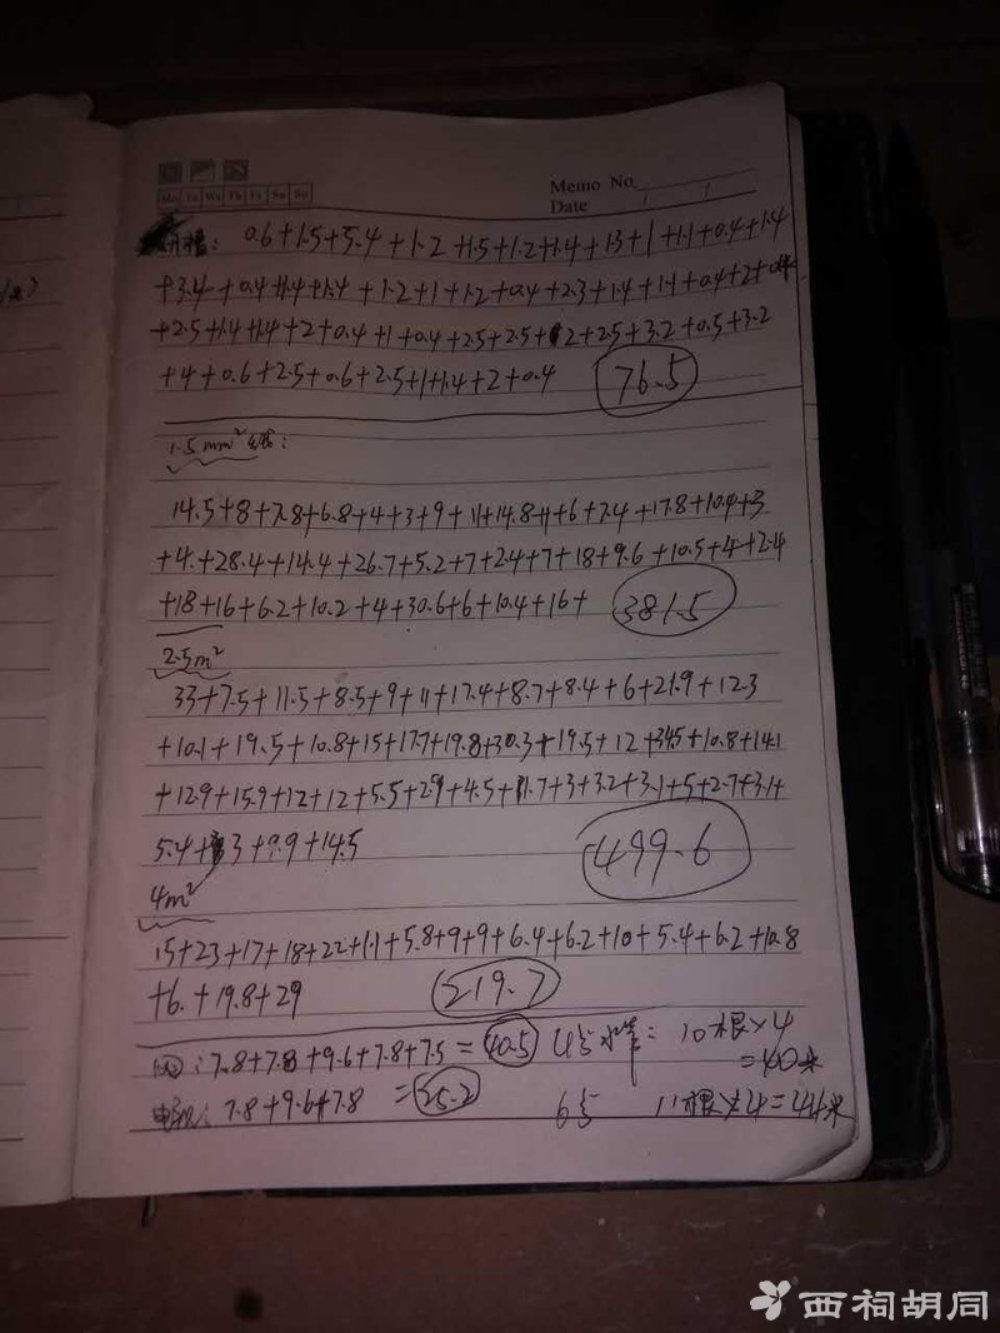 Mo Tu We Th Fr Sa Su
Memo No.
Date
开槽: 0.6+1.5+5.4+1.2+1.5+1.2+1.4+1.3+1+1.1+0.4+1.4
+3.4+0.4+1.4+1.4+1.2+1+1.2+0.4+2.3+1.4+1.1+0.4+2+0.4
+2.5+1.4+1.4+2+0.4+1+0.4+2.5+2.5+2+2.5+3.2+0.5+3.2
+4+0.6+2.5+0.6+2.5+1+1.4+2+0.4 76.5
1.5mm²线:
14.5+8+7.8+6.8+4+3+9+11+14.8+11+6+7.4+17.8+10.4+3
+4.+28.4+14.4+26.7+5.2+7+2.4+7+18+9.6+10.5+4+2.4
+18+16+6.2+10.2+4+30.6+6+10.4+16+ 381.5
2.5m²
33+7.5+11.5+8.5+9+11+17.4+8.7+8.4+6+21.9+12.3
+10.1+19.5+10.8+15+17.7+19.8+30.3+19.5+12+34.5+10.8+14.1
+12.9+15.9+12+12+5.5+2.9+4.5+11.7+3+3.2+3.1+5+2.7+3.1+
5.4+3+9.9+14.5 499.6
4m²
15+23+17+18+22+11+5.8+9+9+6.4+6.2+10+5.4+6.2+10.8
+6.+19.8+29 219.7
网:7.8+7.8+9.6+7.8+7.5=40.5 4分水管: 10根×4
=40米
电视:7.8+9.6+7.8 =25.2 6分 11根×4=44米
西祠胡同